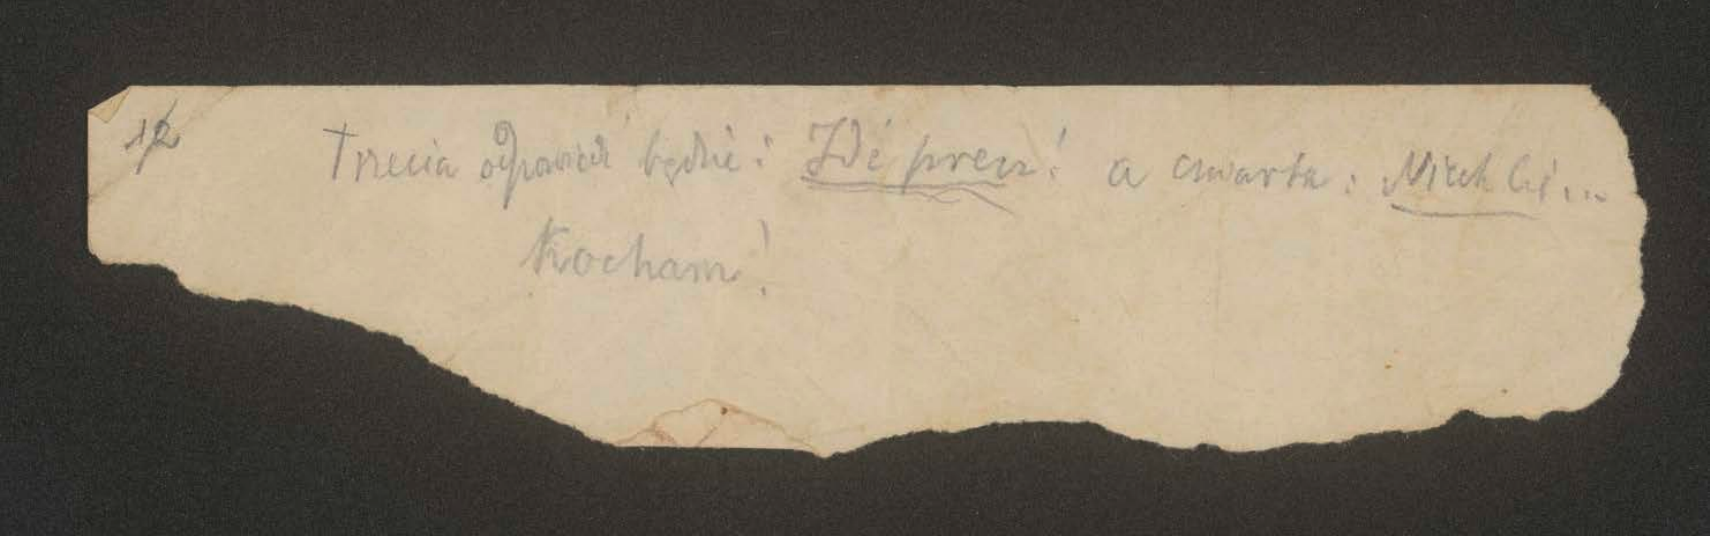 12
Trzecia odpowiedź będzie: Idź precz! a czwarta: Niech Cię...
Kocham!